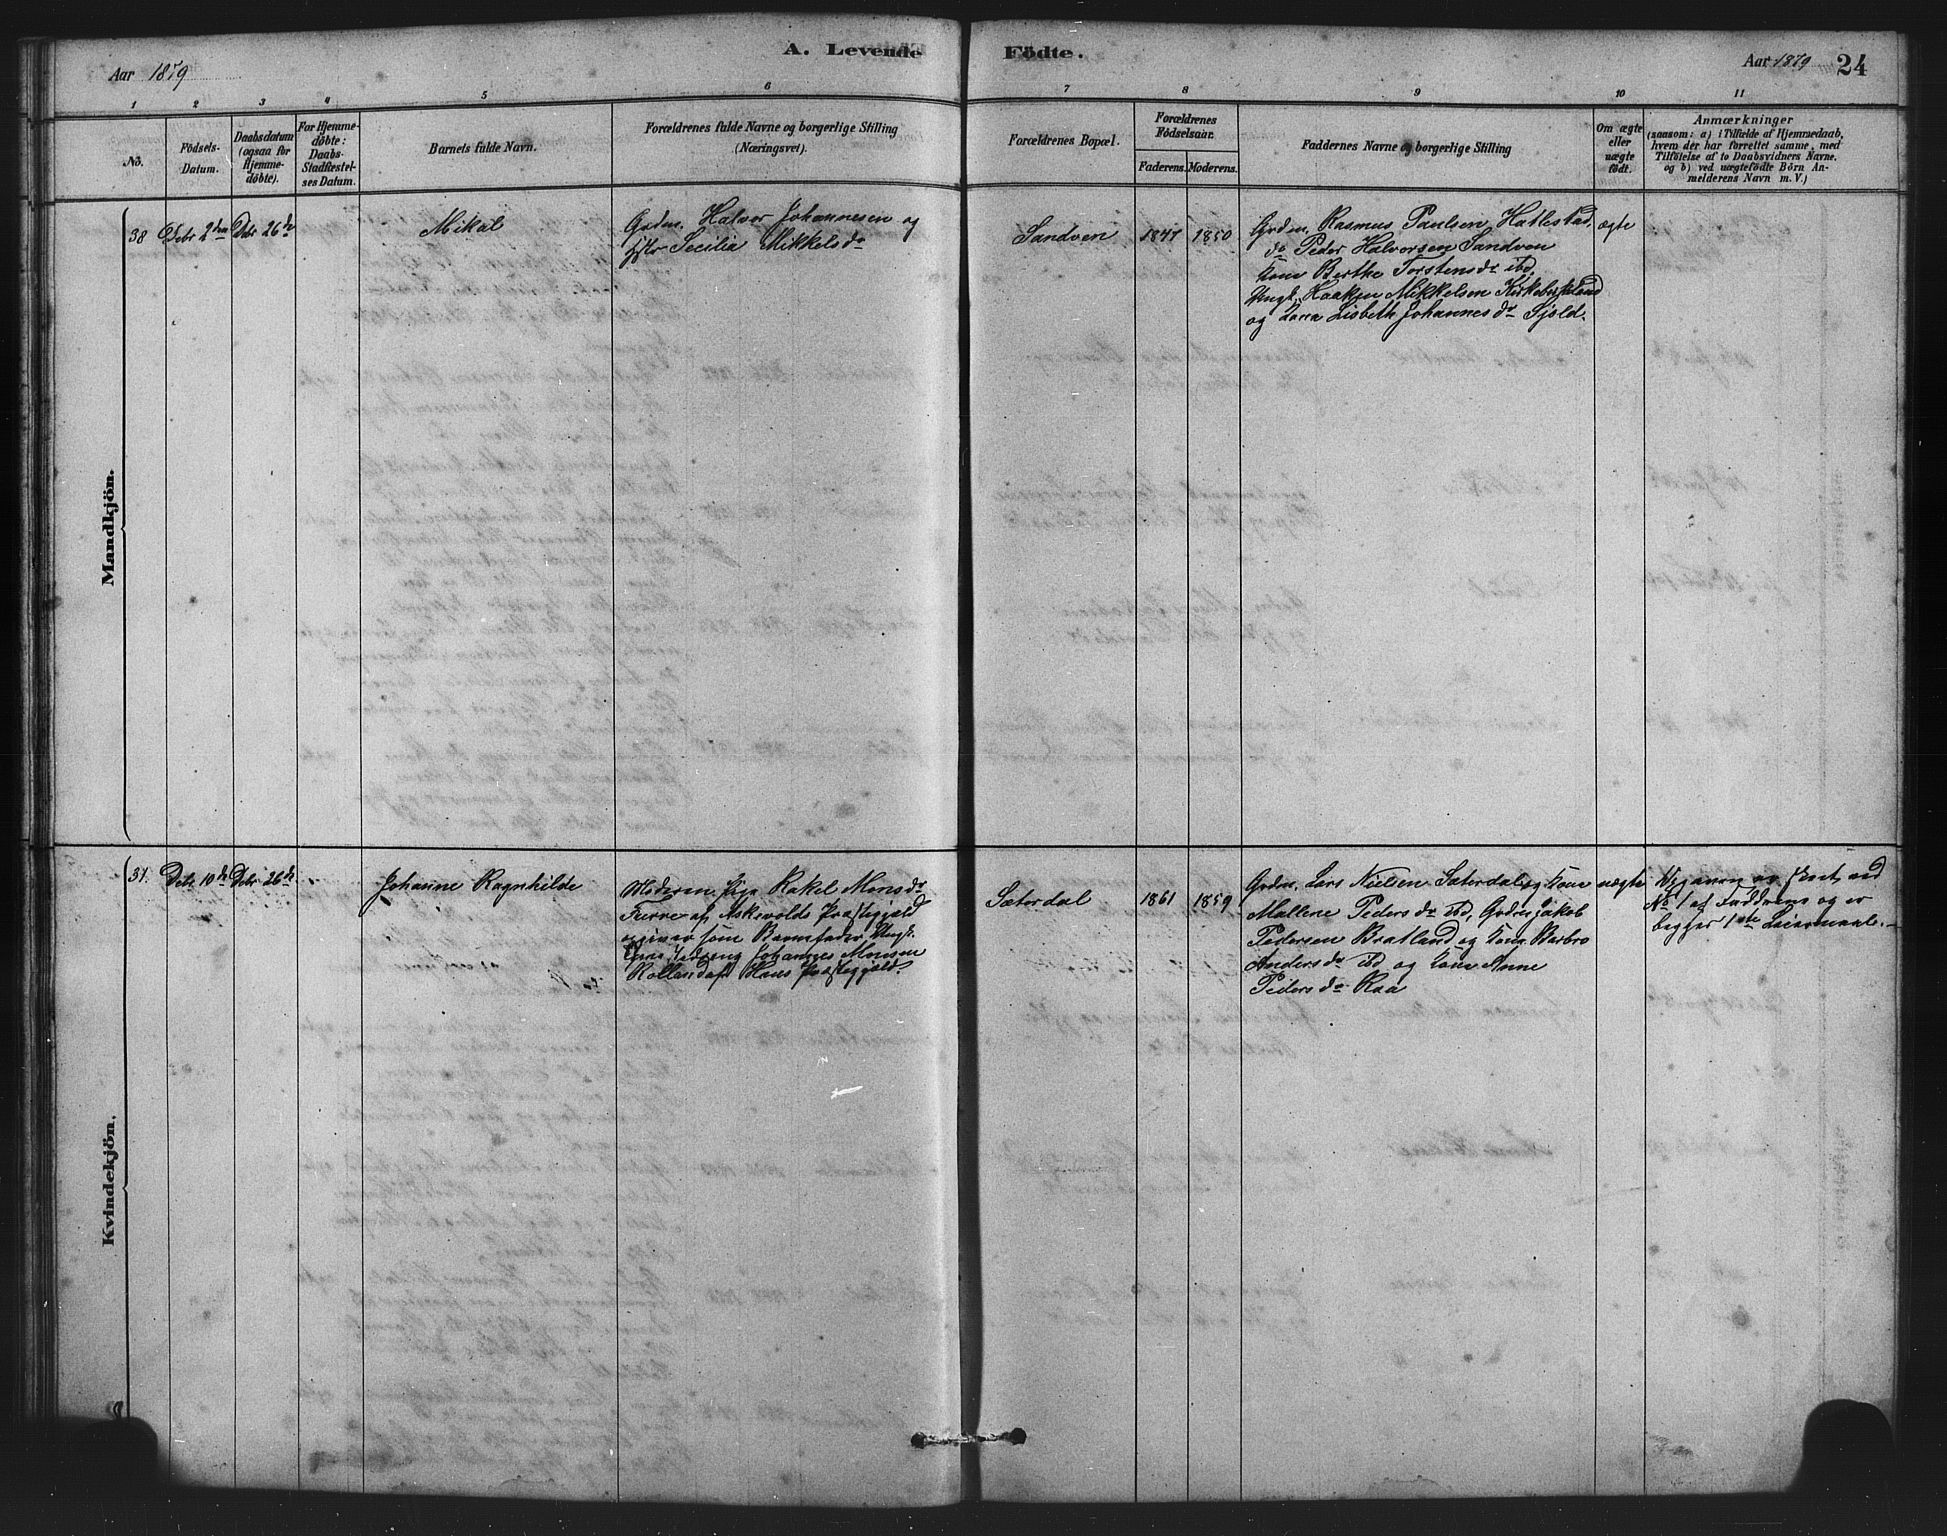 A. Levende Födte.
Aar 1879
Aar 1879 24
1 2 3 4 5 6 7 8 9 10 11
No.
Födsels-
Datum.
Daabsdatum
(ogsaa for
Hjemme-
döbte).
For Hjemme-
döbte:
Daabs-
Stadfæstel-
ses Datum.
Barnets fulde Navn.
Forældrenes fulde Navne og borgerlige Stilling
(Næringsvei).
Forældrenes Bopæl.
Forældrenes
Födselsaar.
Faderens. Moderens.
Faddernes Navne og borgerlige Stilling
Om ægte
eller
uægte
födt.
Anmærkninger
(saasom: a) i Tilfælde af Hjemmedaab,
hvem der har forrettet samme, med
Tilföielse af to Daabsvidners Navne,
og b) ved uægtefödte Börn An-
melderens Navn m. V.)
Mandkjön.
38 Debr 2den Debr 26de
Mikal
Grdm. Halvor Johannesen og
Secilia Mikkelsdr
Sandven
1847 1850
Grdm. Rasmus Paulsen Hatlestad,
do Peder Halvorsen Sandven
Kone Berthe Torstensdr ibd,
Ungk. Haakon Mikkelsen
og Kone Lisbeth Johannesdr
ægte
Kvindekjön.
31. Debr 10de Debr 26de
Johanne Ragnhilde
Moderen Pige Rakel Monsdr
Furre af Askevolds Præstegjeld
opgiver som Barnefader Ungk.
Johannes Monsen
Rolland af Haus Præstegjeld.
Sæterdal
1861 1859
Grdm. Lars Nielsen Sæterdal og Kone
Mallene Pedersdr ibd, Grdm Jakob
Pedersen Bratland og Kone Barbro
Andersdr ibd og Kone Anne
Pedersdr Raa
uægte
No 1 af Fadderne og er
begges 1ste Leiermaal.